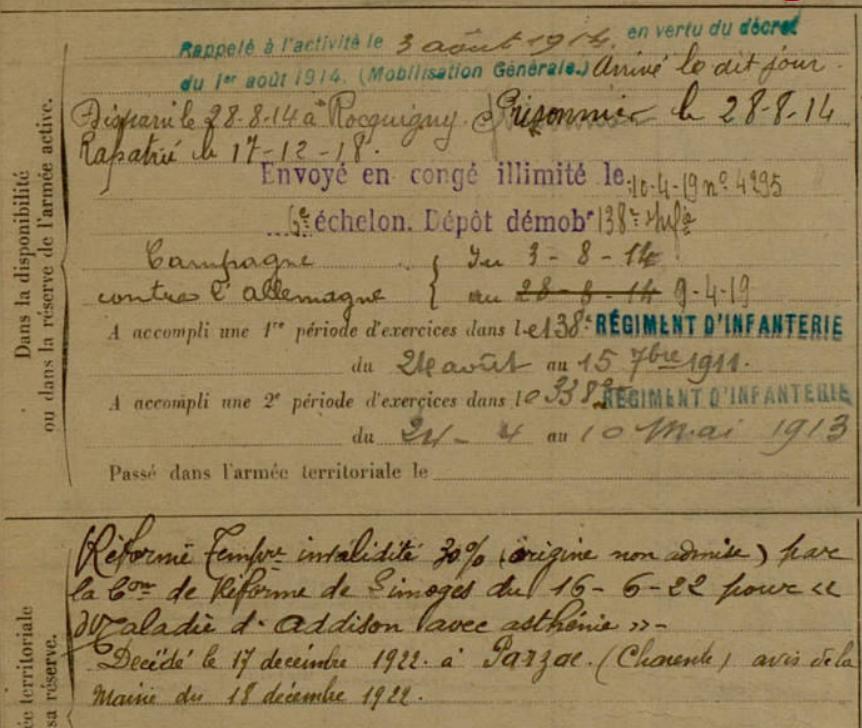 Dans la disponibilité
ou dans la réserve de l'armée active.
Rappelé à l'activité le 3 août 1914, en vertu du décret
du 1er août 1914. (Mobilisation Générale.) Arrivé le dit jour.
Disparu le 28-8-14 à Rocquigny. Prisonnier le 28-8-14
Rapatrié le 17-12-18.
Envoyé en congé illimité le 10-4-19 nº 4295
6e échelon. Dépôt démobr 138e
Campagne du 3-8-14
contre l'allemagne au 28-8-14 9-4-19
A accompli une 1re période d'exercices dans le 138e RÉGIMENT D'INFANTERIE
du 24 août au 15 7bre 1911.
A accompli une 2e période d'exercices dans le 338e RÉGIMENT D'INFANTERIE
du 24-4 au 10 Mai 1913
Passé dans l'armée territoriale le
ée territoriale
sa réserve.
Réformé Tempre invalidité 30% (origine non admise) par
la Con de Réforme de Limoges du 16-6-22 pour «
Maladie d'Addison avec asthénie »-
Décédé le 17 decembre 1922. à Parzac. (Charente) avis de la
Mairie du 18 décembre 1922.